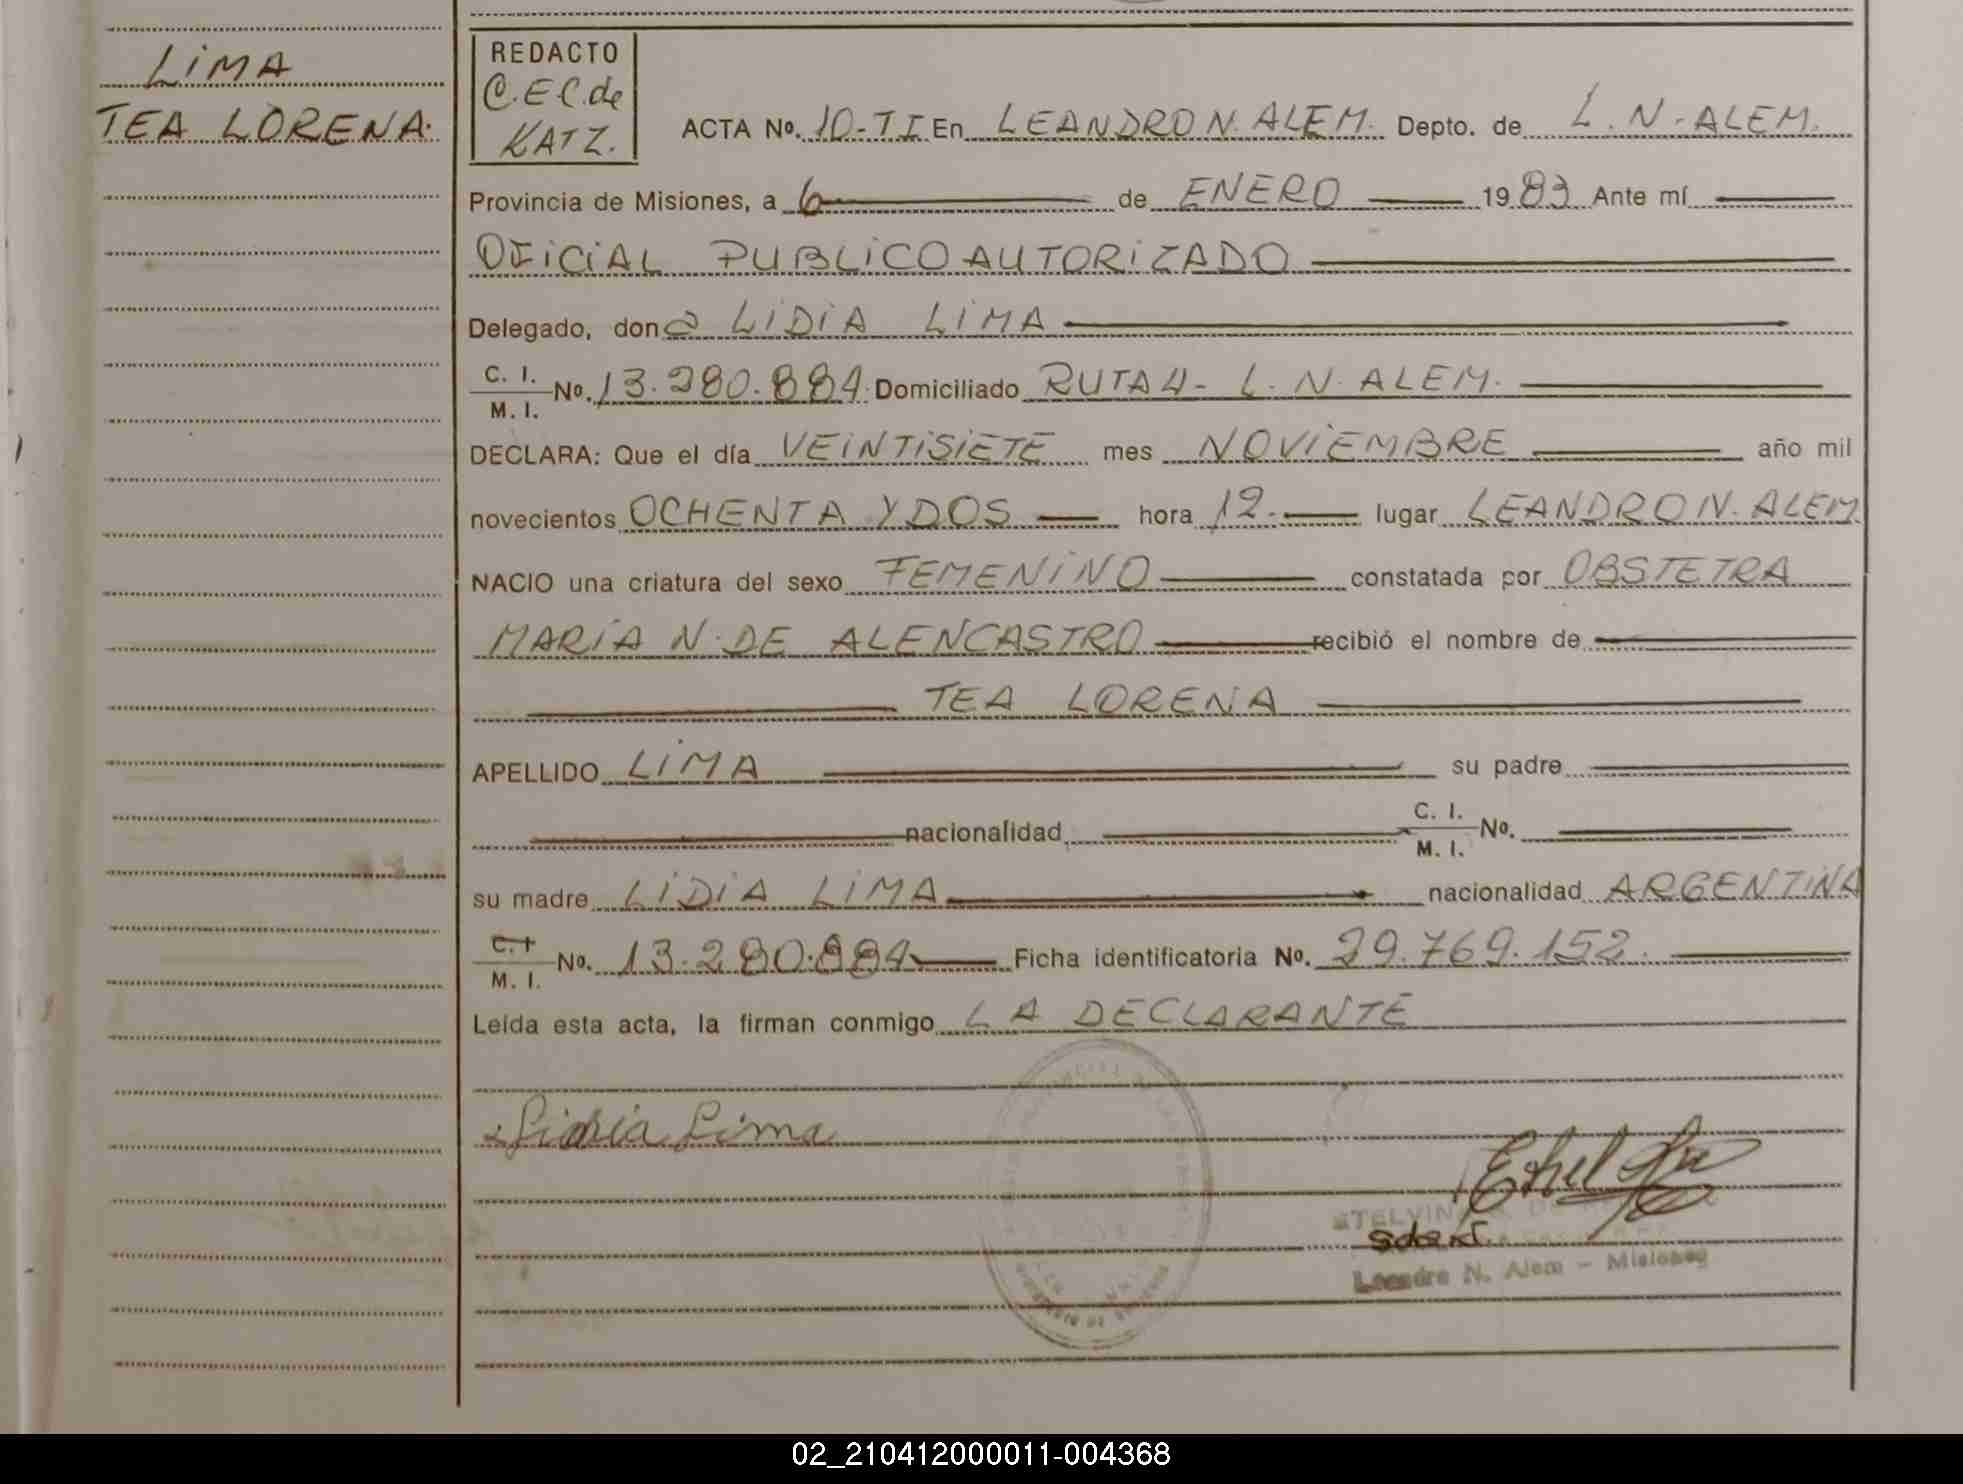 LIMA
TEA LORENA.
REDACTO
C.E.C. de
KATZ.
ACTA No. 10-TI En LEANDRO N. ALEM. Depto. de L. N. ALEM.
Provincia de Misiones, a 6 de ENERO 1983 Ante mí
OFICIAL PUBLICO AUTORIZADO
Delegado, don a LIDIA LIMA
C. I.
M. I. No. 13.280.884. Domiciliado RUTA 4- L. N. ALEM.
DECLARA: Que el día VEINTISIETE mes NOVIEMBRE año mil
novecientos OCHENTA Y DOS hora 12. lugar LEANDRO N. ALEM
NACIO una criatura del sexo FEMENINO constatada por OBSTETRA
MARIA N. DE ALENCASTRO recibió el nombre de
TEA LORENA
APELLIDO LIMA su padre
nacionalidad C. I.
M. I. No.
su madre LIDIA LIMA nacionalidad ARGENTINA
C. I
M. I. No. 13.280.884 Ficha identificatoria No. 29.769.152.
Leída esta acta, la firman conmigo LA DECLARANTE
Lidia Lima
Leandro N. Alem - Misiones
02_210412000011-004368